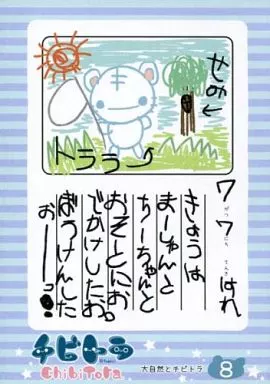 せみ
トララ
7がつ7にち てんき はれ
きょうは
まーしゅんと
ちーちゃんと
おそとにお
でかけしたお。
ぼうけんした
おーっ!
チビトラ
ChibiTora
大自然とチビトラ
8